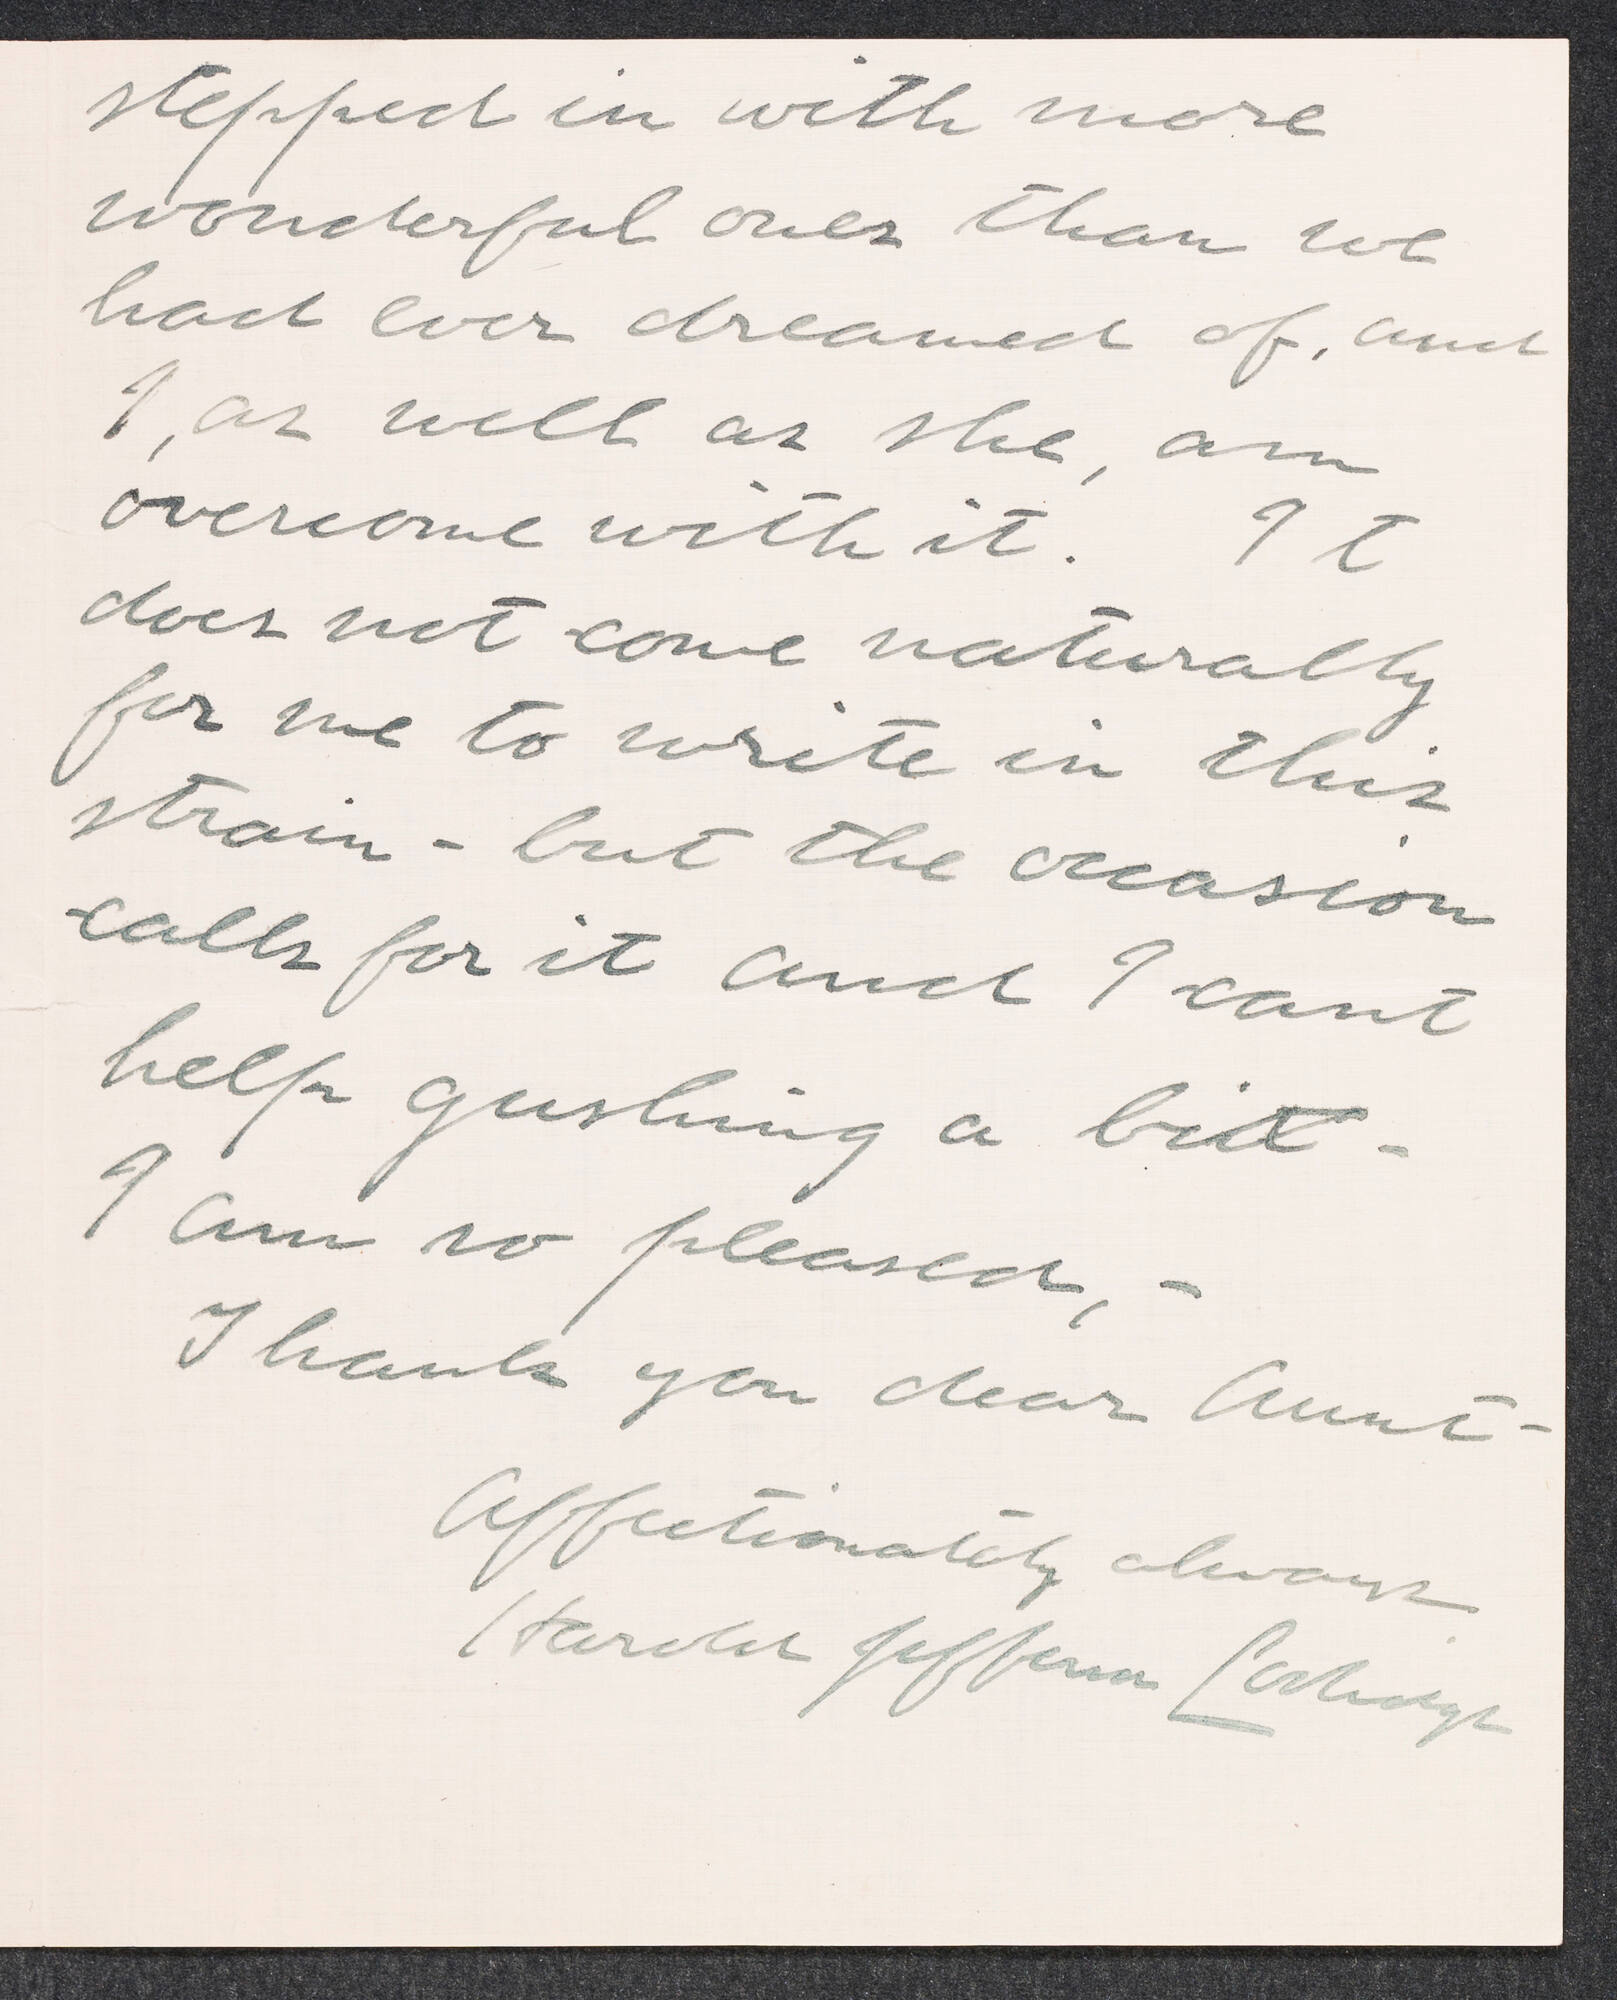 stepped in with more
wonderful ones than we
had ever dreamed of, and
I, as well as she, am
overcome with it. It
does not come naturally
for me to write in this
strain - but the occasion
calls for it and I cant
help gushing a bit -
I am so pleased, -
Thank you dear Aunt -
Affectionately always
Harold Jefferson Coolidge